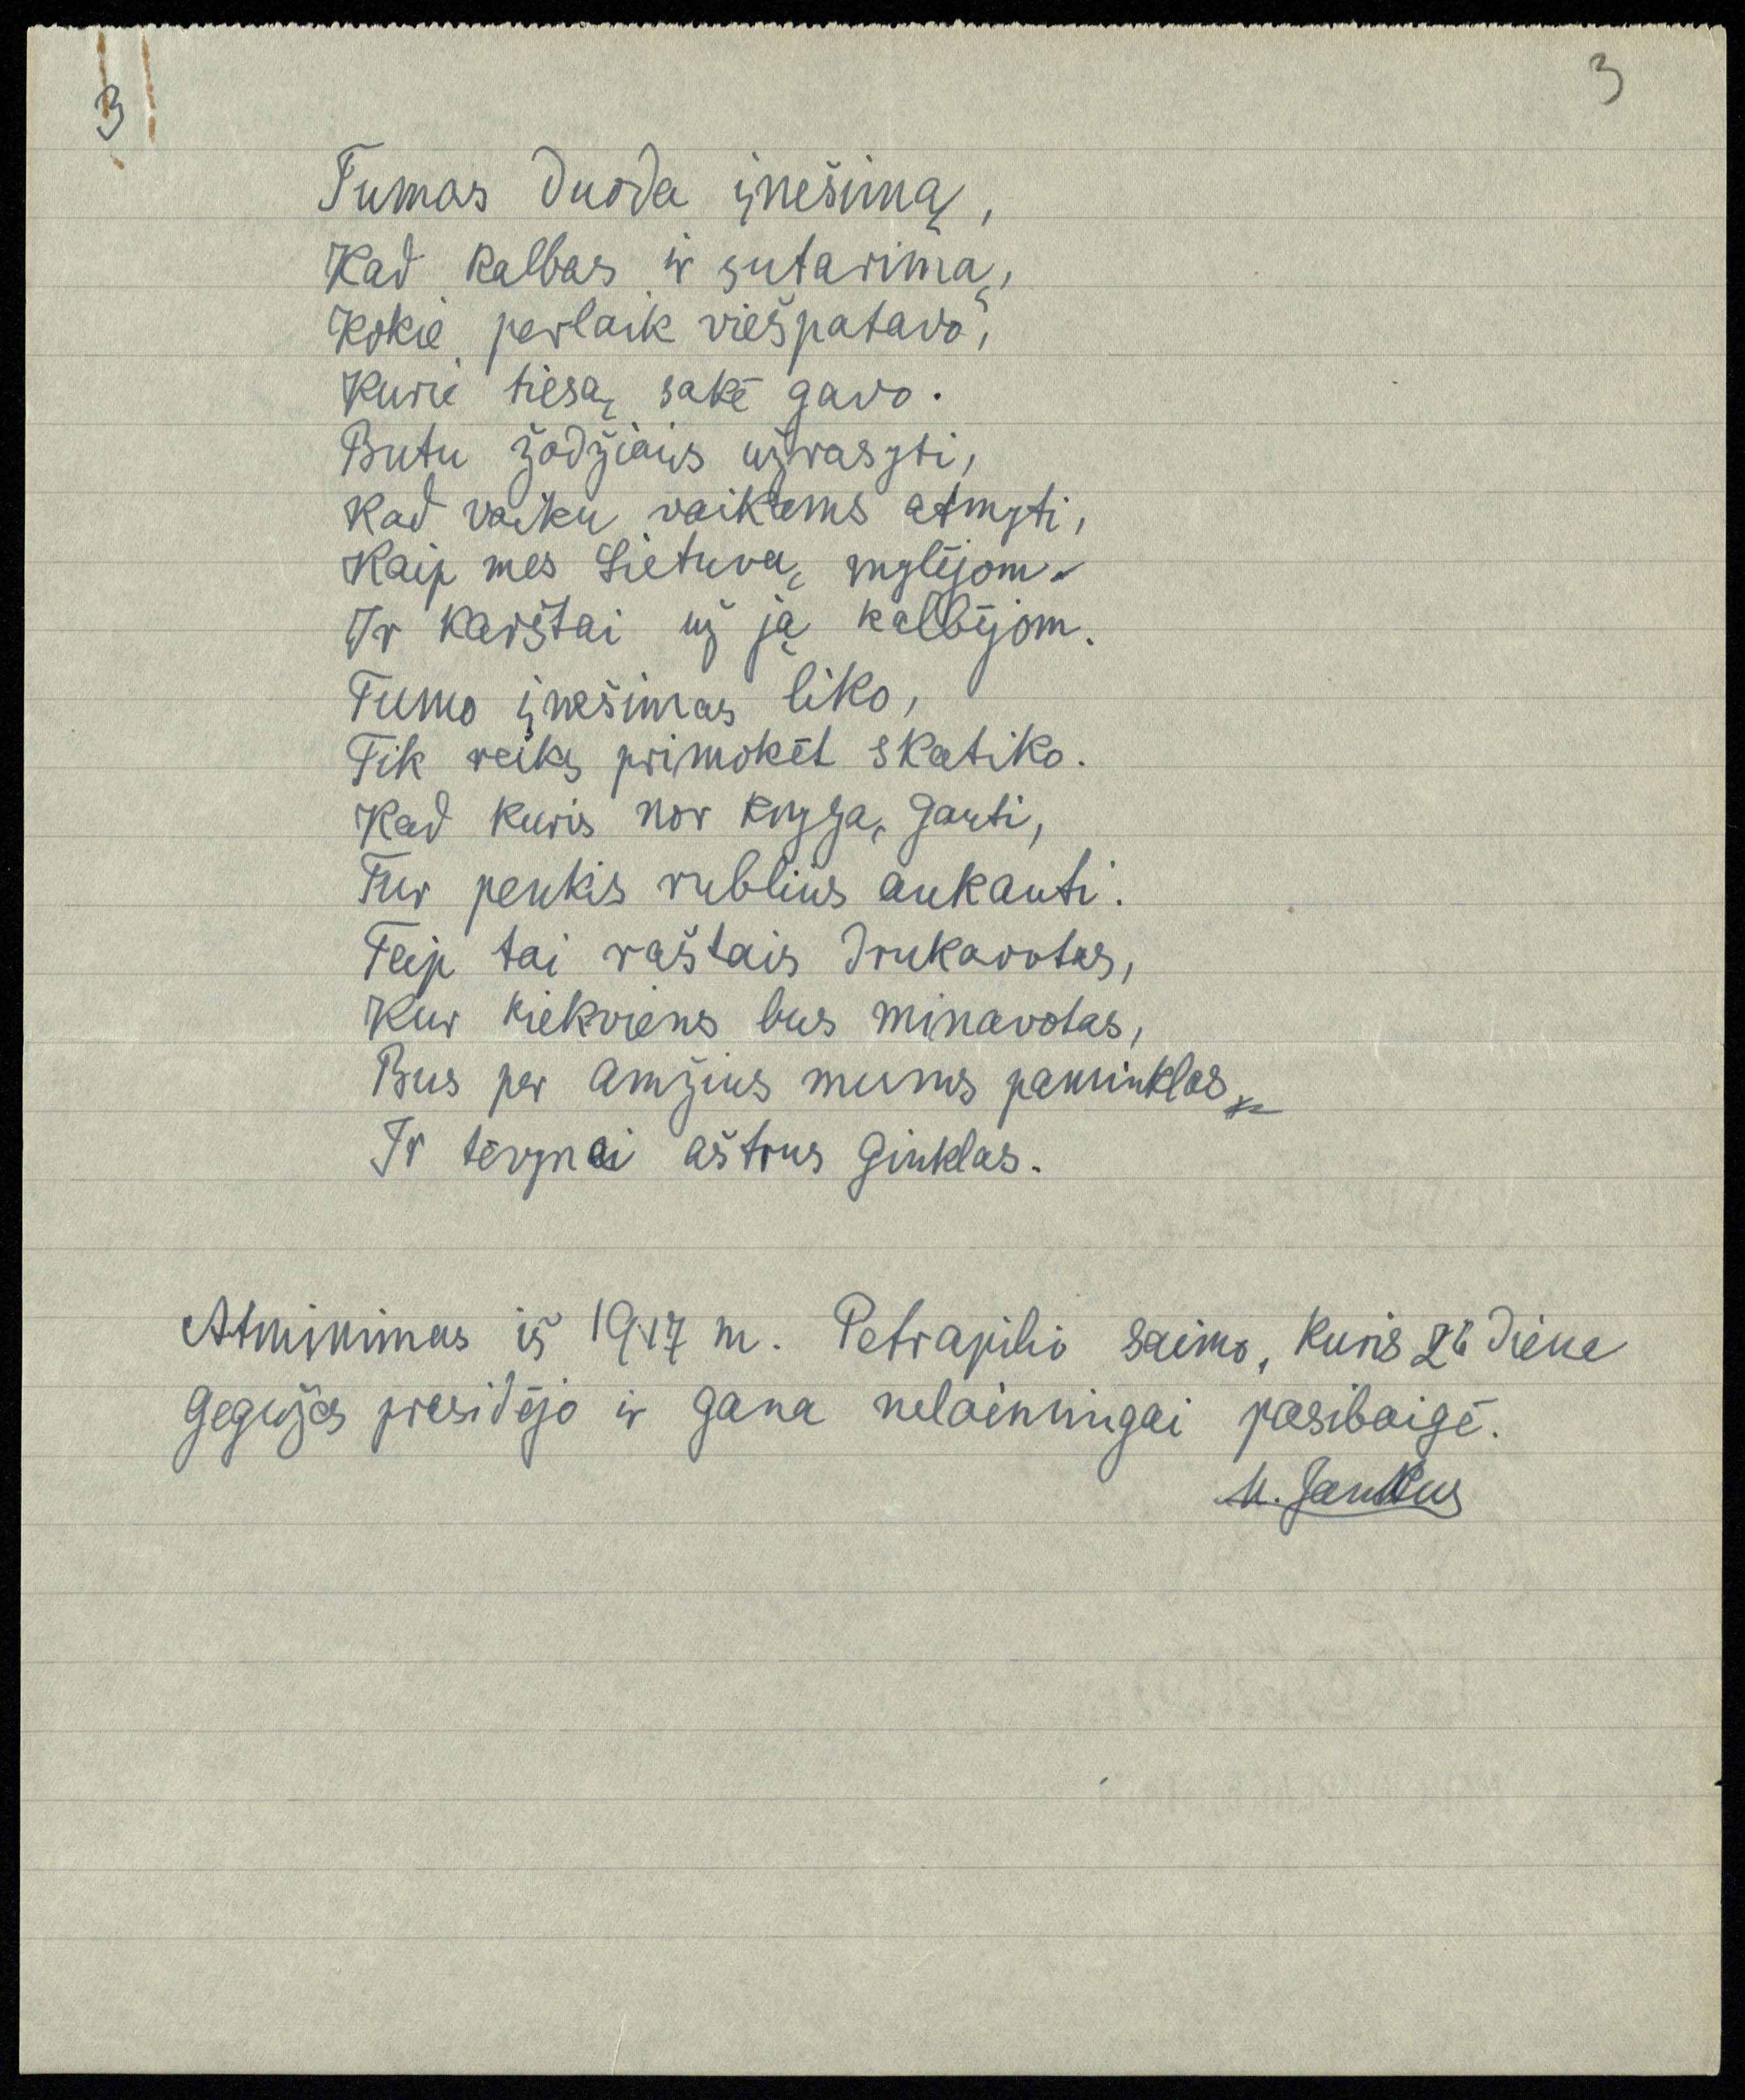 3
3
Tumas duoda įnešimą,
Kad kalbas ir sutarimą,
Kokie perlaik viešpatavo,
Kurie tiesą sakė gavo.
Butu žodžiais užrasyti,
Kad vaiku vaikams atmyti,
Kaip mes Lietuvą mylėjom
Ir karštai už ją kalbėjom.
Tumo įnešimas liko,
Tik reiks primokėt skatiko.
Kad kuris nor knygą gauti,
Tur penkis rublius aukauti.
Teip tai raštais drukavotas,
Kur kiekviens bus minavotas,
Bus per amžius mums paminklas
Ir tėvynai aštrus ginklas.
Atminimas iš 1917 m. Petrapilio saimo, kuris 26 diena
Gegužes prasidėjo ir gana nelaimingai pasibaigė.
M. Jankus